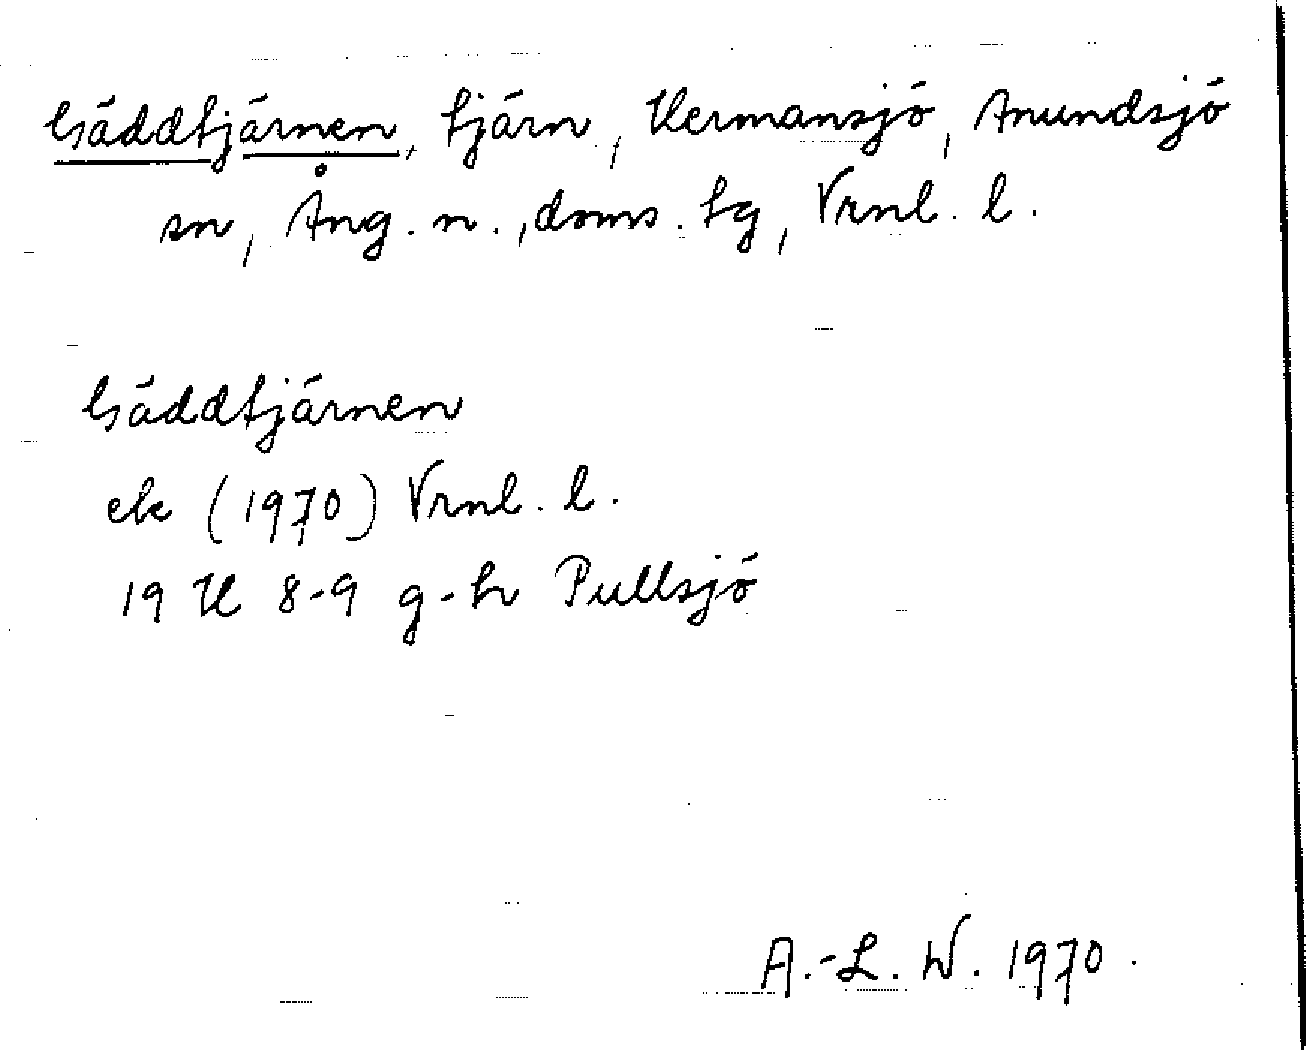 Gäddtjärnen, tjärn, Hermansjö, Anundsjö
sn, Ång. n., doms. tg, Vrnl. l.
Gäddtjärnen
ek (1970) Vrnl. l.
19 H 8-9 g-h Pullsjö
A.-L. W. 1970.